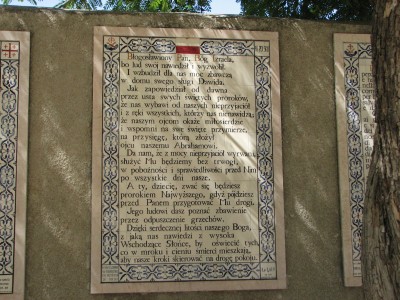 Błogosławiony Pan, Bóg Izraela,
bo lud swój nawiedził i wyzwolił.
I wzbudził dla nas moc zbawczą
w domu swego sługi Dawida.
Jak zapowiedział od dawna
przez usta swych świętych proroków,
że nas wybawi od naszych nieprzyjaciół
i z ręki wszystkich, którzy nas nienawidzą,
że naszym ojcom okaże miłosierdzie
i wspomni na swe święte przymierze,
na przysięgę, którą złożył
ojcu naszemu Abrahamowi.
Da nam, że z mocy nieprzyjaciół wyrwani,
służyć Mu będziemy bez trwogi,
w pobożności i sprawiedliwości przed Nim
po wszystkie dni nasze.
A ty, dziecię, zwać się będziesz
prorokiem Najwyższego, gdyż pójdziesz
przed Panem przygotować Mu drogi,
Jego ludowi dasz poznać zbawienie
przez odpuszczenie grzechów.
Dzięki serdecznej litości naszego Boga,
z jaką nas nawiedzi z wysoka
Wschodzące Słońce, by oświecić tych,
co w mroku i cieniu śmierci mieszkają,
aby nasze kroki skierować na drogę pokoju.